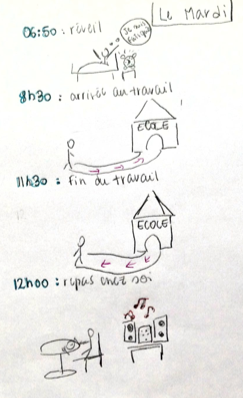 Le Mardi
06:50 : réveil
Je suis fatigué
8h30 : arrivée au travail
ECOLE
11h30 : fin du travail
ECOLE
12h00 : repas chez soi